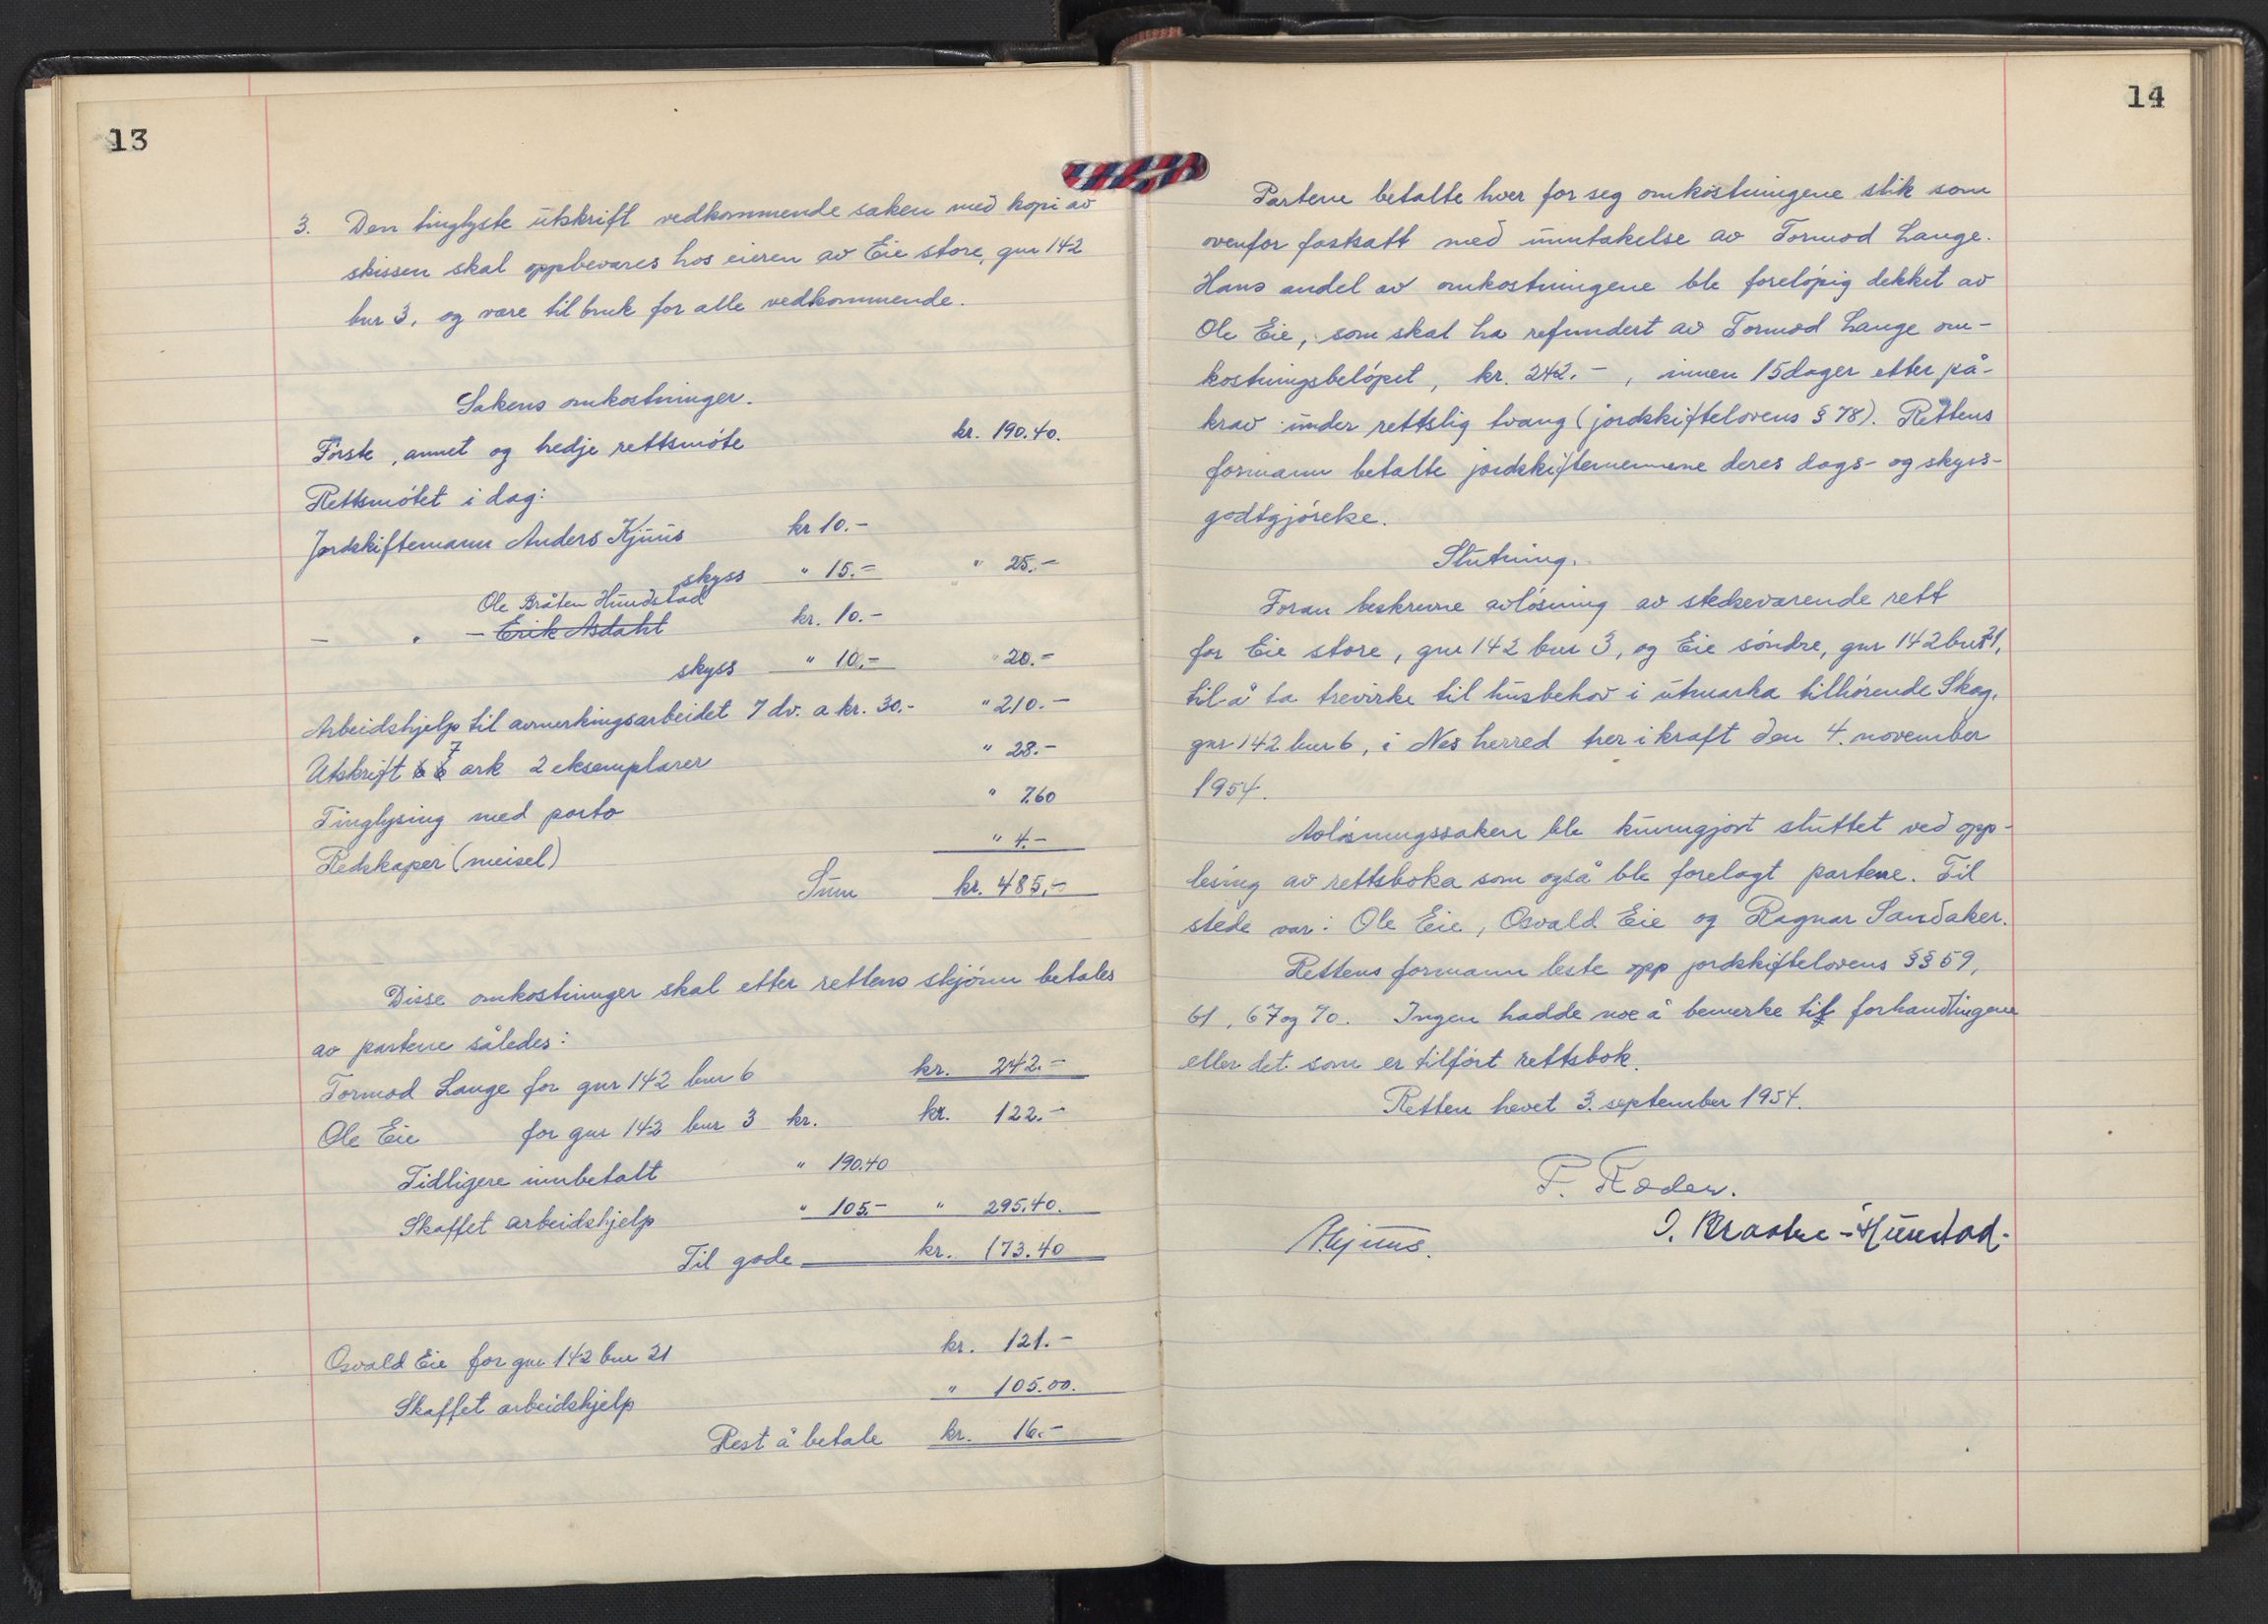 13
3. Den tinglyste utskrift vedkommende saken med kopi av
skissen skal oppbevares hos eieren av Eie store, gnr 142
bnr 3, og være til bruk for alle vedkommende.
Sakens omkostninger.
Første, annet og tredje rettsmøte kr. 190.40.
Rettsmøtet i dag:
Jordskiftemann Anders Kjuus kr 10.-
skyss " 15.- " 25.-
Ole Bråten Hundstad
- " - Erik Asdahl kr. 10.-
skyss " 10.- " 20.-
Arbeidshjelp til avmerkingsarbeidet 7 dv. a kr. 30.- " 210.-
7
Utskrift 6 6 ark 2 eksemplarer " 28.-
Tinglysing med porto " 7.60
Redskaper (meisel) " 4.-
Sum kr. 485,-
Disse omkostninger skal etter rettens skjønn betales
av partene således:
Tormod Lange for gnr 142 bnr 6 kr. 242.-
Ole Eie for gnr 142 bnr 3 kr. kr. 122.-
Tidligere innbetalt " 190.40
Skaffet arbeidshjelp " 105.- " 295.40.
Til gode kr. 173.40
Osvald Eie for gnr 142 bnr 21 kr. 121.-
Skaffet arbeidshjelp " 105.00.
Rest å betale kr. 16.-
14
Partene betalte hver for seg omkostningene slik som
ovenfor fastsatt med unntakelse av Tormod Lange.
Hans andel av omkostningene ble foreløpig dekket av
Ole Eie, som skal ha refundert av Tormod Lange om-
kostningsbeløpet, kr. 242.-, innen 15 dager etter på-
krav under rettslig tvang (jordskiftelovens § 78). Rettens
formann betalte jordskiftemennene deres dags- og skyss-
godtgjørelse.
Slutning.
Foran beskrevne avløsning av stedsevarende rett
for Eie store, gnr 142 bnr 3, og Eie søndre, gnr 142 bnr 21,
til å ta trevirke til husbehov i utmarka tilhørende Skog,
gnr 142 bnr 6, i Nes herred trer i kraft den 4. november
1954.
Avløsningssaken ble kunngjort sluttet ved opp-
lesing av rettsboka som også ble forelagt partene. Til
stede var: Ole Eie, Osvald Eie og Ragnar Sandaker.
Rettens formann leste opp jordskiftelovens §§ 59,
61, 67 og 70. Ingen hadde noe å bemerke til forhandlingene
eller det som er tilført rettsbok.
Retten hevet 3. september 1954.
A Kjuus.